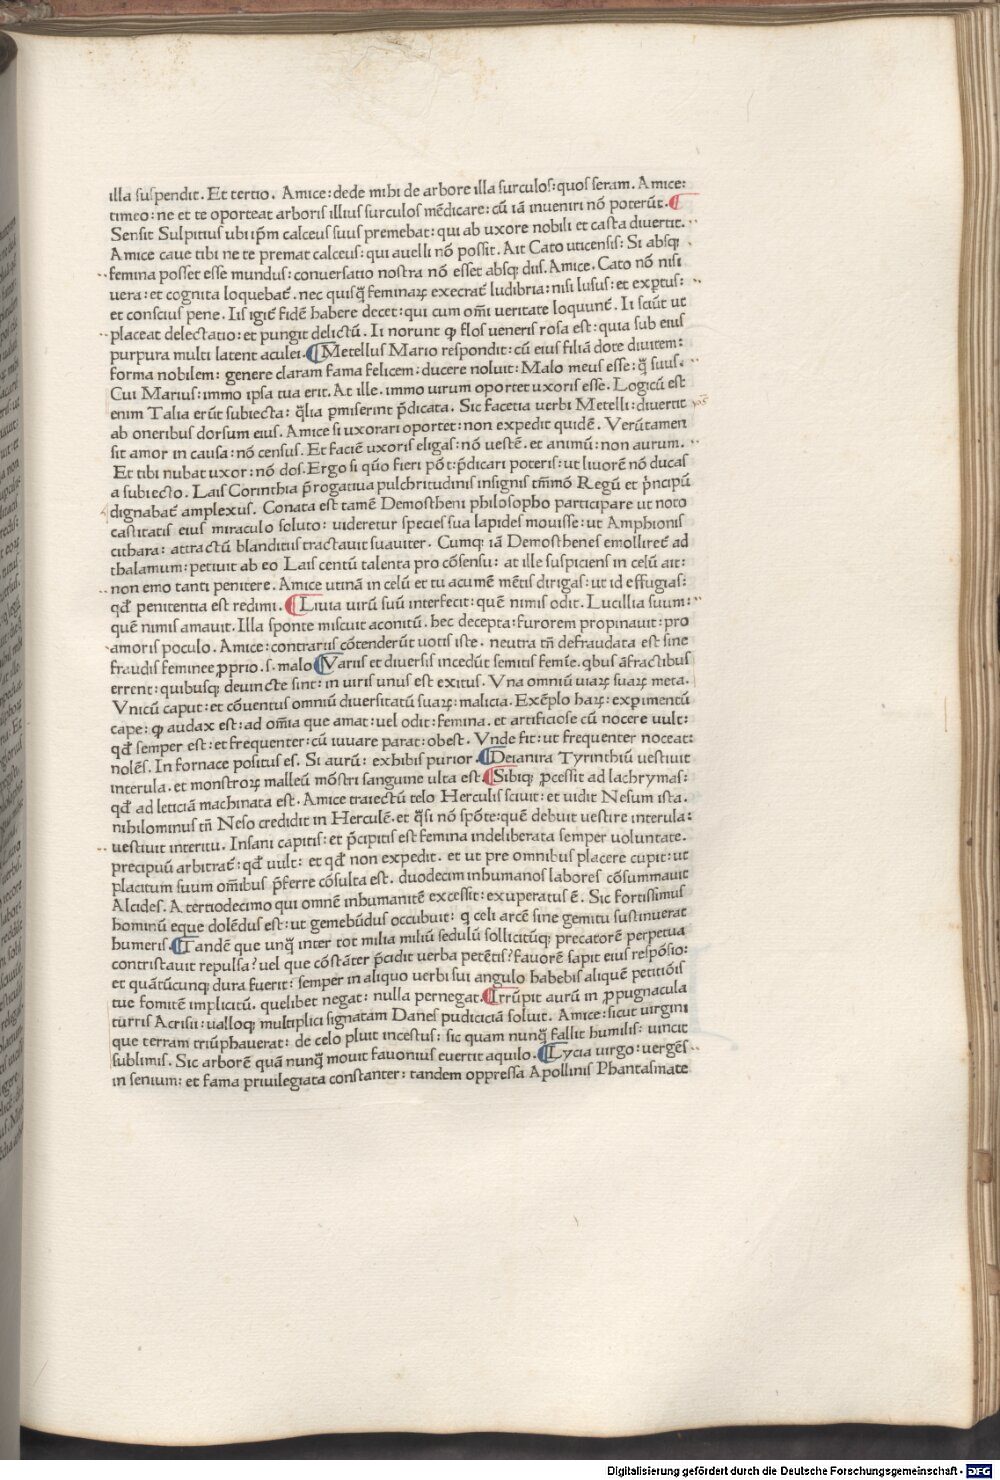 illa suspendit. Et tertio. Amice: dede mihi de arbore illa surculos: quos seram. Amice:
timeo: ne et te oporteat arboris illius surculos mēdicare: cū iā inueniri nō poterūt. ¶
Sensit Sulpitius ubi ip̄m calceus suus premebat: qui ab uxore nobili et casta diuertit.
Amice caue tibi ne te premat calceus: qui auelli nō possit. Ait Cato uticensis: Si absq;
femina posset esse mundus: conuersatio nostra nō esset absq; diis. Amice. Cato nō nisi
uera: et cognita loquebat̄. nec quisq̄ feminaꝝ execrat̄ ludibria: nisi lusus: et exp̄tus:
et conscius pene. Iis igit̄ fidē habere decet: qui cum om̄i ueritate loquunt̄. Ii sciūt ut
placeat delectatio: et pungit delictū. Ii norunt ꝙ flos ueneris rosa est: quia sub eius
purpura multi latent aculei. ¶ Metellus Mario respondit: cū eius filiā dote diuitem:
forma nobilem: genere claram fama felicem: ducere noluit: Malo meus esse: q̄ suus.
Cui Marius: immo ipsa tua erit. At ille. immo uirum oportet uxoris esse. Logicū est
enim Talia erūt subiecta: q̄lia p̄miserint p̄dicata. Sic facetia uerbi Metelli: diuertit
ab oneribus dorsum eius. Amice si uxorari oportet: non expedit quidē. Verūtamen
sit amor in causa: nō census. Et faciē uxoris eligas: nō uestē. et animū: non aurum.
Et tibi nubat uxor: nō dos. Ergo si q̄uo fieri pōt: p̄dicari poteris: ut liuorē nō ducas
a subiecto. Lais Corinthia p̄rogatiua pulchritudinis insignis tm̄mō Regū et p̄ncipū
dignabat̄ amplexus. Conata est tamē Demostheni philosopho participare ut noto
castitatis eius miraculo soluto: uideretur species sua lapides mouisse: ut Amphionis
cithara: attractū blanditiis tractauit suauiter. Cumq; iā Demosthenes emollireť ad
thalamum: petiuit ab eo Lais centū talenta pro cōsensu: at ille suspiciens in celū ait:
non emo tanti penitere. Amice utinā in celū et tu acumē mētis dirigas: ut id effugias:
qđ penitentia est redimi. ¶ Liuia uirū suū interfecit: quē nimis odit. Lucillia suum:
quē nimis amauit. Illa sponte miscuit aconitū. hec decepta: furorem propinauit: pro
amoris poculo. Amice: contrariis cōtenderūt uotis iste. neutra tn̄ defraudata est fine
fraudis feminee ꝓprio. s. malo ¶ Variis et diuersis incedūt semitis femīe. qbus āfractibus
errent: quibusq; deuincte sint: in uiris unus est exitus. Vna omniū uiaꝝ suaꝝ meta.
Vnicū caput: et cōuentus omniū diuersitatū suaꝝ: malicia. Exēplo haꝝ: exp̄imentū
cape: ꝙ audax est: ad om̄ia que amat: uel odit: femina. et artificiose cū nocere uult:
qđ semper est: et frequenter: cū iuuare parat: obest. Vnde fit: ut frequenter noceat:
nolēs. In fornace positus es. Si aurū: exhibis purior. ¶ Deianira Tyrinthiū uestiuit
interula. et monstroꝝ malleū mōstri sanguine ulta est. ¶ Sibiq; ꝓcessit ad lachrymas:
qđ ad leticiā machinata est. Amice traiectū telo Herculis sciuit: et uidit Nesum ista.
nihilominus tn̄ Neso credidit in Herculē. et q̄si nō spōte: quē debuit uestire interula:
uestiuit interitu. Insani capitis: et p̄cipitis est femina indeliberata semper uoluntate.
precipuū arbitrat̄: qđ uult: et qđ non expedit. et ut pre omnibus placere cupit: ut
placitum suum om̄ibus p̄ferre cōsulta est. duodecim inhumanos labores cōsummauit
Alcides. A tertiodecimo qui omnē inhumanitē excessit: exuperatus ē. Sic fortissimus
hominū eque dolēdus est: ut gemebūdus occubuit: q celi arcē sine gemitu sustinuerat
humeris. ¶ Tandē que unq̄ inter tot milia miliū sedulū sollicitūq; precatorē perpetua
contristauit repulsa? uel que cōstāter p̄cidit uerba petētis? fauorē sapit eius respōsio:
et quātūcunq; dura fuerit: semper in aliquo uerbi sui angulo habebis aliquē petitiōis
tue fomitē implicitū. quelibet negat: nulla pernegat. ¶ Irrūpit aurū in ꝓpugnacula
turris Acrisii: uallo q; multiplici signatam Danes pudiciciā soluit. Amice: sicut uirgini
que terram triūphauerat: de celo pluit incestus: sic quam nunq̄ fallit humilis: uincit
sublimis. Sic arborē quā nunq̄ mouit fauonius euertit aquilo. ¶ Lycia uirgo: uergēs
in senium: et fama priuilegiata constanter: tandem oppressa Apollinis Phantasmate
Digitalisierung gefördert durch die Deutsche Forschungsgemeinschaft - DFG